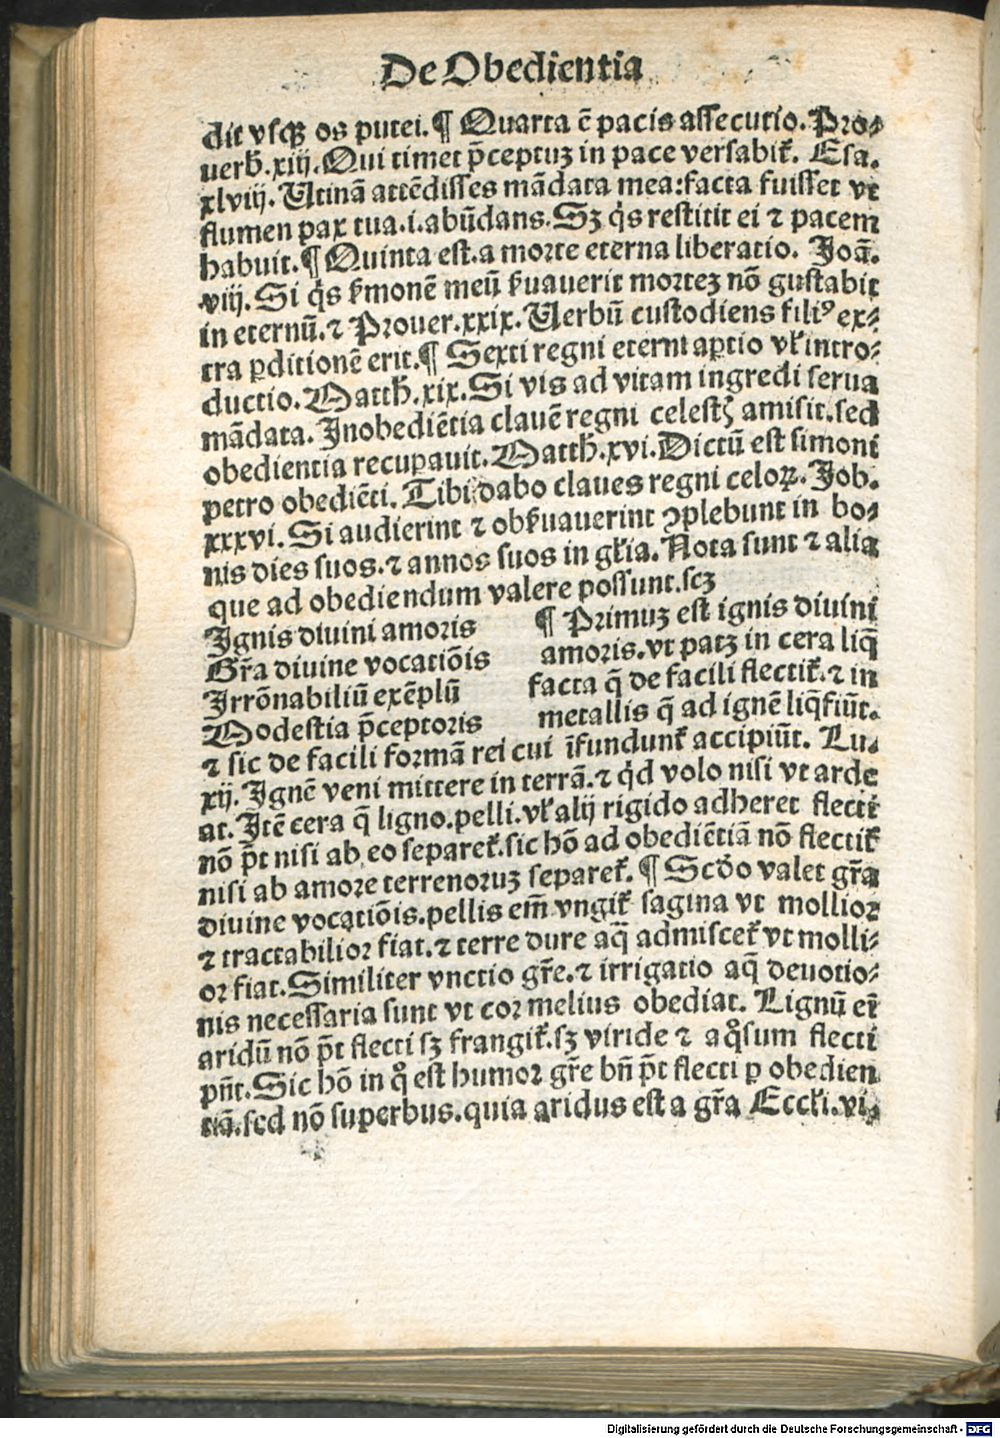 De Obedientia
dit vsqꝫ os putei. ¶ Quarta ē pacis assecutio. Pro⸗
uerb̄. xiij. Qui timet p̄ceptuꝫ in pace versabit᷑. Esa.
xlviij. Utinā attēdisses mādata mea: facta fuisset vt
flumen pax tua .i. abūdans. Sꝫ q̇s restitit ei ⁊ pacem
habuit. ¶ Quinta est. a morte eterna liberatio. Joā.
viij. Si q̇s ẜmonē meū ẜuauerit morteꝫ nō gustabit
in eternū. ⁊ Prouer. xxix. Uerbū custodiens filiꝰ ex⸗
tra ꝑditionē erit. ¶ Sexti regni eterni aꝑtio vl̓ intro⸗
ductio. Matth̄. xix. Si vis ad vitam ingredi serua
mādata. Inobediētia clauē regni celestꝭ amisit. sed
obedientia recuꝑauit. Matth̄. xvi. Dictū est simoni
petro obediēti. Tibi dabo claues regni celoꝝ. Job.
xxxvi. Si audierint ⁊ obẜuauerint ꝯplebunt in bo⸗
nis dies suos. ⁊ annos suos in gl̓ia. Nota sunt ⁊ alia
que ad obediendum valere possunt. scꝫ
Ignis diuini amoris
Gr̄a diuine vocatiōis
Irrōnabiliū exēplū
Modestia p̄ceptoris
¶ Primuꝫ est ignis diuini
amoris. vt patꝫ in cera liq̄
facta q̄ de facili flectit᷑. ⁊ in
metallis q̄ ad ignē liq̄fiūt.
⁊ sic de facili formā rei cui īfundunt᷑ accipiūt. Lu.
xij. Ignē veni mittere in terrā. ⁊ q̇d volo nisi vt arde
at. Itē cera q̄ ligno. pelli. vl̓ alij rigido adheret flecti
nō p̄t nisi ab eo separet᷑. sic hō ad obediētiā nō flectit᷑
nisi ab amore terrenoruꝫ separet᷑. ¶ Scd̓o valet gr̄a
diuine vocatiōis. pellis em̄ vngit᷑ sagina vt mollior
⁊ tractabilior fiat. ⁊ terre dure aq̄ admiscet᷑ vt molli⸗
or fiat. Similiter vnctio gr̄e. ⁊ irrigatio aq̄ deuotio⸗
nis necessaria sunt vt cor melius obediat. Lignū em̄
aridū nō p̄t flecti sꝫ frangit᷑. sꝫ viride ⁊ aq̊sum flecti
pn̄t. Sic hō in q̊ est humor gr̄e bn̄ p̄t flecti ꝑ obedien
tiā. sed nō superbus. quia aridus est a gr̄a Eccl̓i. vi.
Digitalisierung gefördert durch die Deutsche Forschungsgemeinschaft - DFG